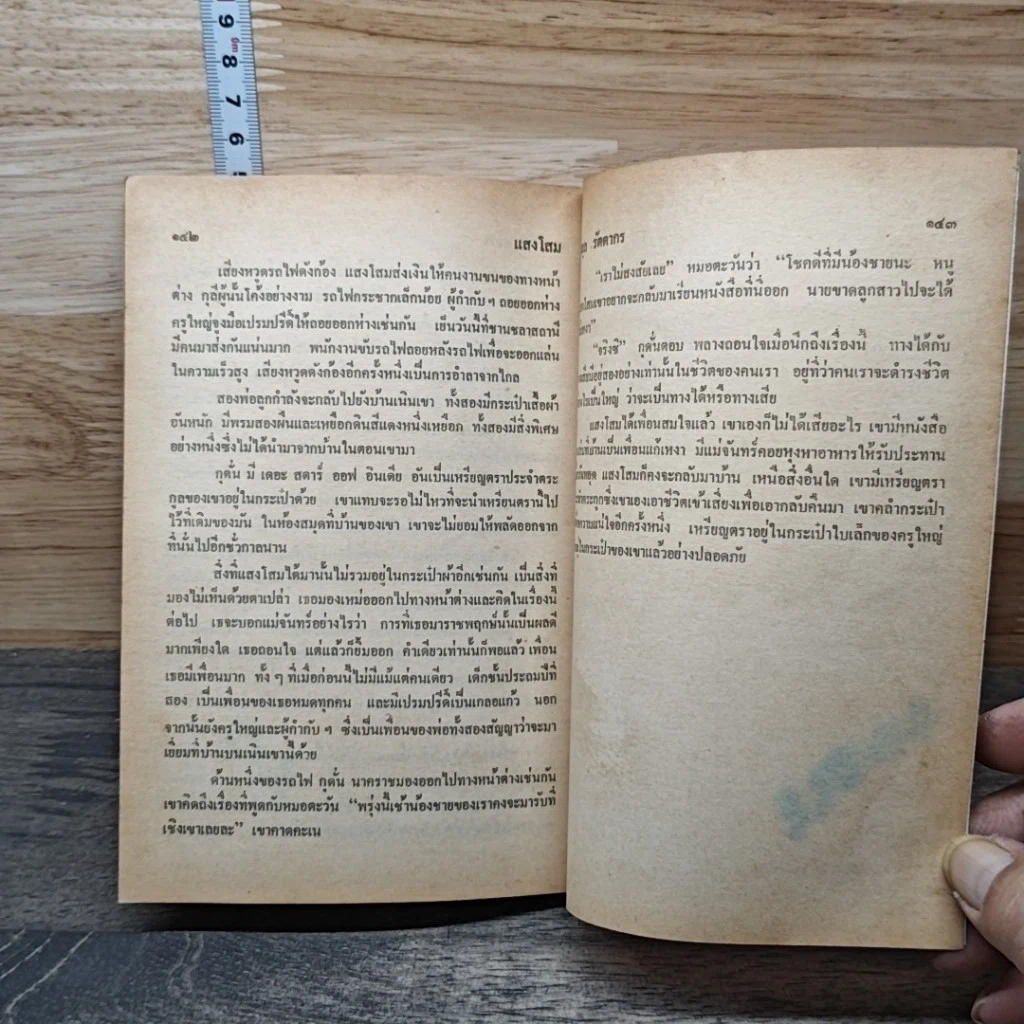 9
8
7
6
๑๔๒
แสงโสม
เสียงหวูดรถไฟดังก้อง แสงโสมส่งเงินให้คนงานขนของทางหน้า
ต่าง กุลีผู้นั้นโค้งอย่างงาม รถไฟกระชากเล็กน้อย ผู้กำกับฯ ถอยออกห่าง
ครูใหญ่จูงมือเปรมปรีดิ์ให้ถอยออกห่างเช่นกัน เย็นวันนี้ที่ชานชลาสถานี
มีคนมาส่งกันแน่นมาก พนักงานขับรถไฟถอยหลังรถไฟเพื่อจะออกแล่น
ในความเร็วสูง เสียงหวูดดังก้องอีกครั้งหนึ่งเป็นการอำลาจากไกล
สองพ่อลูกกำลังจะกลับไปยังบ้านเนินเขา ทั้งสองมีกระเป๋าเสื้อผ้า
อันหนัก มีพรมสองผืนและเหยือกดินสีแดงหนึ่งเหยือก ทั้งสองมีสิ่งพิเศษ
อย่างหนึ่งซึ่งไม่ได้นำมาจากบ้านในตอนเขามา
กุดั่น มี เดอะ สตาร์ ออฟ อินเดีย อันเป็นเหรียญตราประจำตระ
กูลของเขาอยู่ในกระเป๋าด้วย เขาแทบจะรอไม่ไหวที่จะนำเหรียนตรานี้ไป
ไว้ที่เดิมของมัน ในห้องสมุดที่บ้านของเขา เขาจะไม่ยอมให้พลัดออกจาก
ที่นั่นไปอีกชั่วกาลนาน
สิ่งที่แสงโสมได้มานั้นไม่รวมอยู่ในกระเป๋าผ้าอีกเช่นกัน เป็นสิ่งที่
มองไม่เห็นด้วยตาเปล่า เธอมองเหม่อออกไปทางหน้าต่างและคิดในเรื่องนี้
ต่อไป เธจะบอกแม่จันทร์อย่างไรว่า การที่เธอมาราชพฤกษ์นั้นเป็นผลดี
มากเพียงใด เธอถอนใจ แต่แล้วก็ยิ้มออก คำเดียวเท่านั้นก็พอแล้ว เพื่อน
เธอมีเพื่อนมาก ทั้ง ๆ ที่เมื่อก่อนนี้ไม่มีแม้แต่คนเดียว เด็กชั้นประถมปีที่
สอง เป็นเพื่อนของเธอหมดทุกคน และมีเปรมปรีดิ์เป็นเกลอแก้ว นอก
จากนั้นยังครูใหญ่และผู้กำกับ ฯ ซึ่งเป็นเพื่อนของพ่อทั้งสองสัญญาว่าจะมา
เยี่ยมที่บ้านบนเนินเขานี้ด้วย
ด้านหนึ่งของรถไฟ กุดั่น นาคราชมองออกไปทางหน้าต่างเช่นกัน
เขาคิดถึงเรื่องที่พูดกับหมอตะวัน “พรุ่งนี้เช้าน้องชายของเราคงจะมารับที่
เชิงเขาเลยละ” เขาคาดคะเน
รัตตากร
๑๔๓
“เราไม่สงสัยเลย” หมอตะวันว่า “โชคดีที่มีน้องชายนะ หนู
โสมเขาอยากจะกลับมาเรียนหนังสือที่นี่อีก นายขาดลูกสาวไปจะได้
“จริงซี” กุดั่นตอบ พลางถอนใจเมื่อนึกถึงเรื่องนี้ ทางได้กับ
มีอยู่สองอย่างเท่านั้นในชีวิตของคนเรา อยู่ที่ว่าคนเราจะดำรงชีวิต
เป็นใหญ่ ว่าจะเป็นทางได้หรือทางเสีย
แสงโสมได้เพื่อนสมใจแล้ว เขาเองก็ไม่ได้เสียอะไร เขามีหนังสือ
ที่บ้านเป็นเพื่อนแก้เหงา มีแม่จันทร์คอยหุงหาอาหารให้รับประทาน
แสงโสมก็คงจะกลับมาบ้าน เหนือสิ่งอื่นใด เขามีเหรียญตรา
ซึ่งเขาเองเอาชีวิตเข้าเสี่ยงเพื่อเอากลับคืนมา เขาคลำกระเป๋า
ความแน่ใจอีกครั้งหนึ่ง เหรียญตราอยู่ในกระเป๋าใบเล็กของครูใหญ่
ในกระเป๋าของเขาแล้วอย่างปลอดภัย